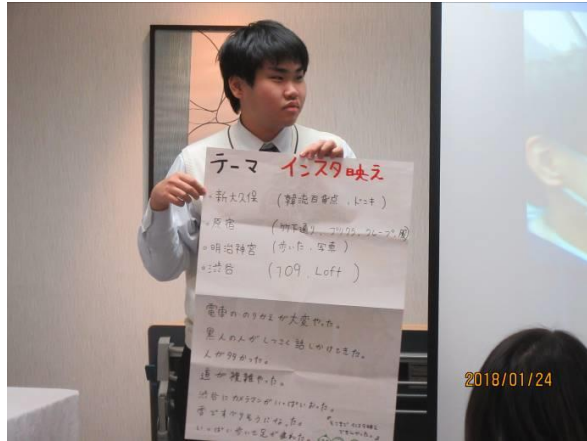 テーマ インスタ映え
・新大久保 (韓流百貨店、ドンキ)
・原宿 (竹下通り、プリクラ、クレープ、服)
・明治神宮 (歩いた、写真)
・渋谷 (109、Loft)
電車ののりかえが大変やった。
黒人の人がしつこく話しかけてきた。
人が多かった。
道が複雑やった。
渋谷にカメラマンがいっぱいおった。
雪ですべりそうになった。
いっぱい歩いて足が疲れた。
2018/01/24